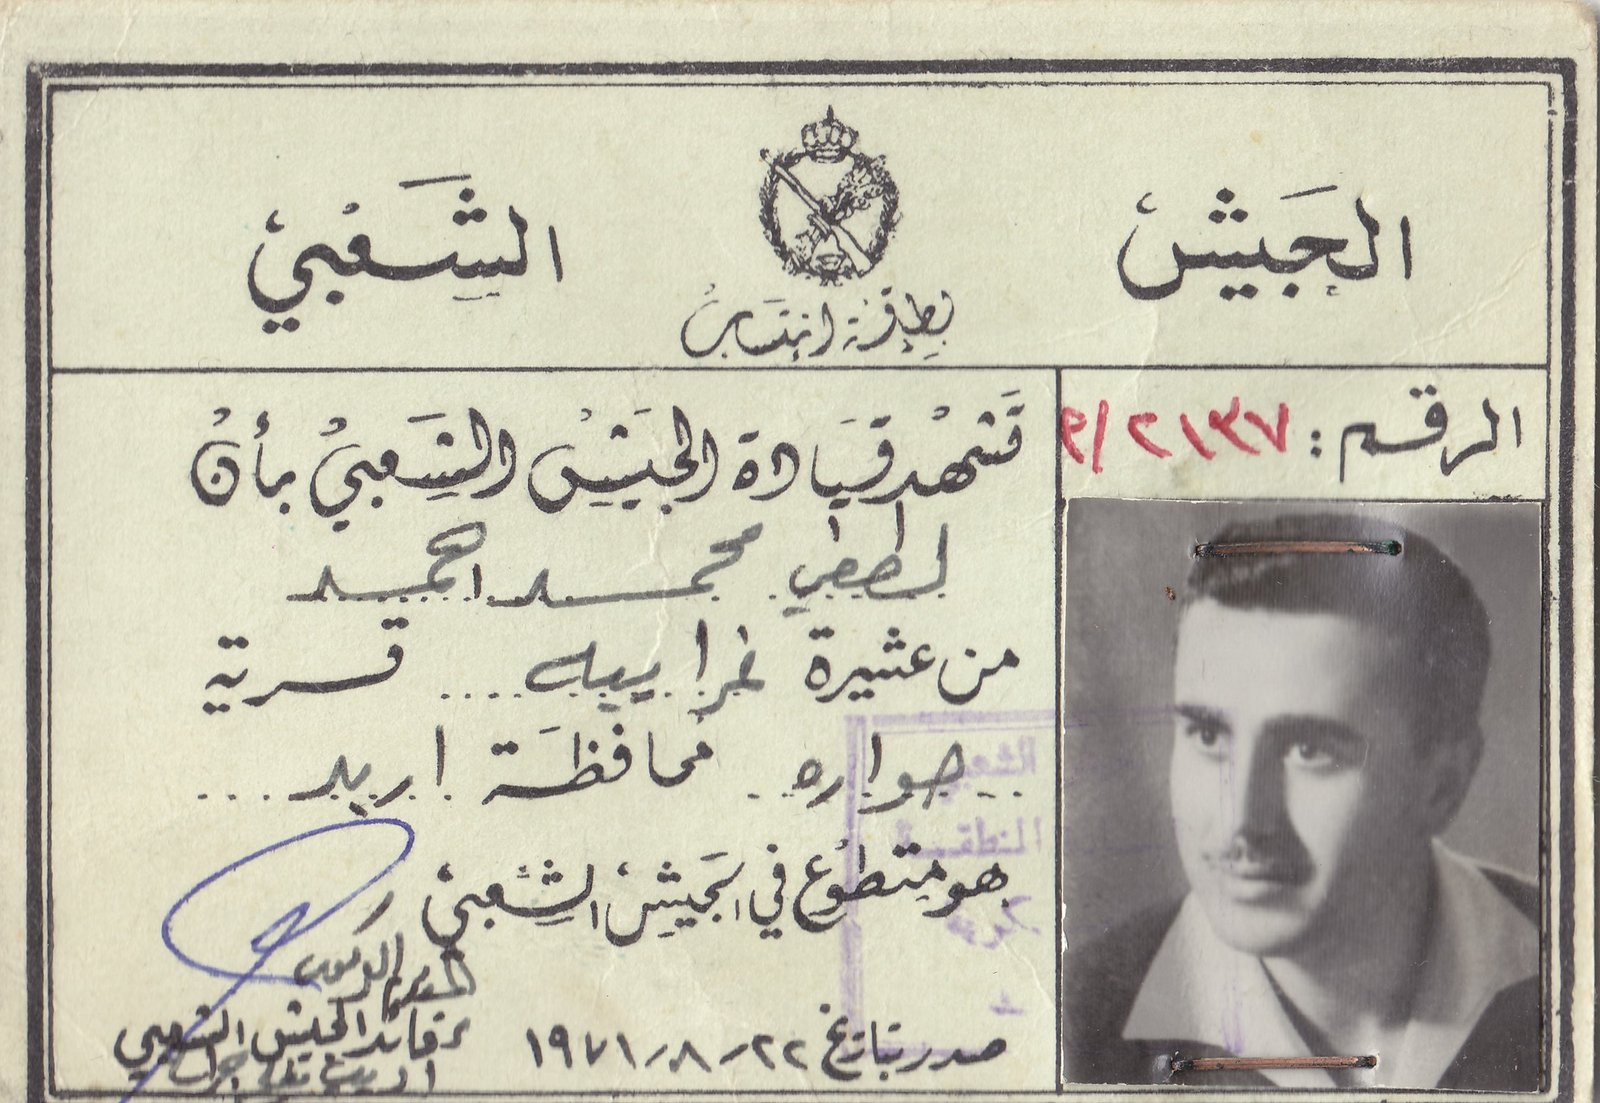 الجيش الشعبي
بطاقة انتساب
الرقم : ٩/٢١٣٧
تشهد قيادة الجيش الشعبي بأن
لطفي محمد احميد
من عشيرة غرايبه .... قرية
حواره .. محافظة اربد ...
هو متطوع في الجيش الشعبي
قائد الجيش الشعبي
صدر بتاريخ ٢٢/٨/١٩٧١
الشعبي
المنطقة